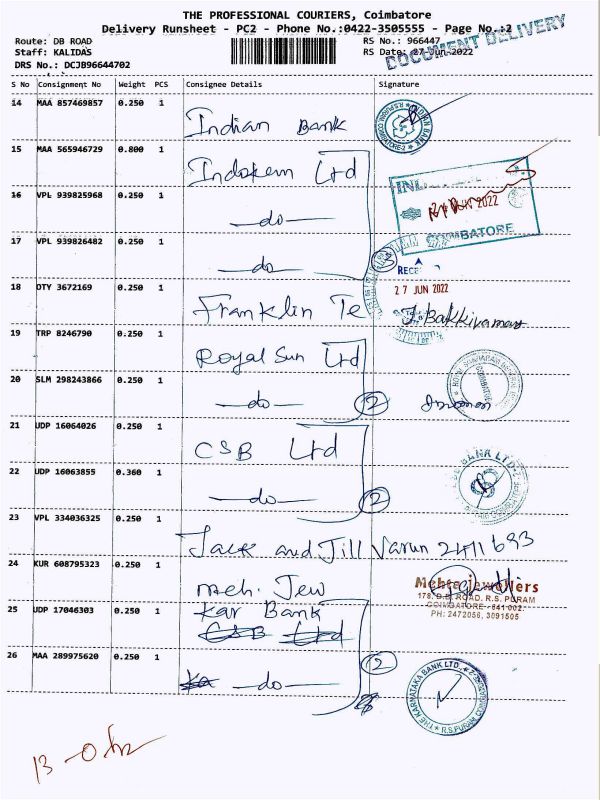 THE PROFESSIONAL COURIERS, Coimbatore
Delivery Runsheet - PC2 - Phone No.:0422-3505555 - Page No.:2
Route: DB ROAD
RS No.: 966447
DOCUMENT DELIVERY
Staff: KALIDAS
RS Date: 27-Jun-2022
DRS No.: DCJB96644702
S No Consignment No Weight PCS Consignee Details Signature
14 MAA 857469857 0.250 1 Indian Bank
15 MAA 565946729 0.800 1 Indokem Ltd
16 VPL 939825968 0.250 1 —do—
JUN 2022
COIMBATORE
17 VPL 939826482 0.250 1 —do— 2
27 JUN 2022
18 OTY 3672169 0.250 1 Franklin Te
19 TRP 8246790 0.250 1 Royal Sun Ltd
20 SLM 298243866 0.250 1 —do— 2
21 UDP 16064026 0.250 1 CSB Ltd
22 UDP 16063855 0.360 1 —do— 2
23 VPL 334036325 0.250 1 Jack and Jill Varun 2411693
24 KUR 608795323 0.250 1 meh. Jew
Mehta Jewellers
178, D.B. ROAD, R.S. PURAM
COIMBATORE - 641 002.
PH: 2472056, 3091505
25 UDP 17046303 0.250 1 Kar Bank
CSB Ltd
26 MAA 289975620 0.250 1 Ka —do— 2
THE KARNATAKA BANK LTD.
R.S. PURAM, COIMBATORE-2